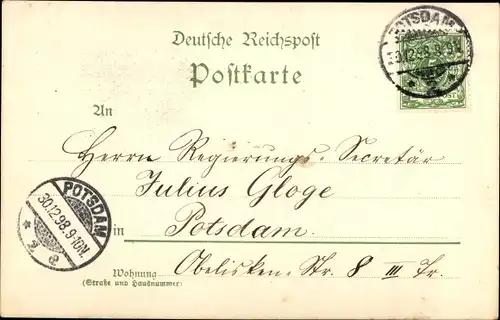 POTSDAM
30.12.98.9-10N.
Deutsche Reichspost
Postkarte
An
Herrn Regierungs-Secretär
Julius Gloge
in Potsdam.
POTSDAM
30.12.98.9-10N.
* 2 e.
Wohnung Obelisken-Str. 8 III Tr.
(Straße und Hausnummer)